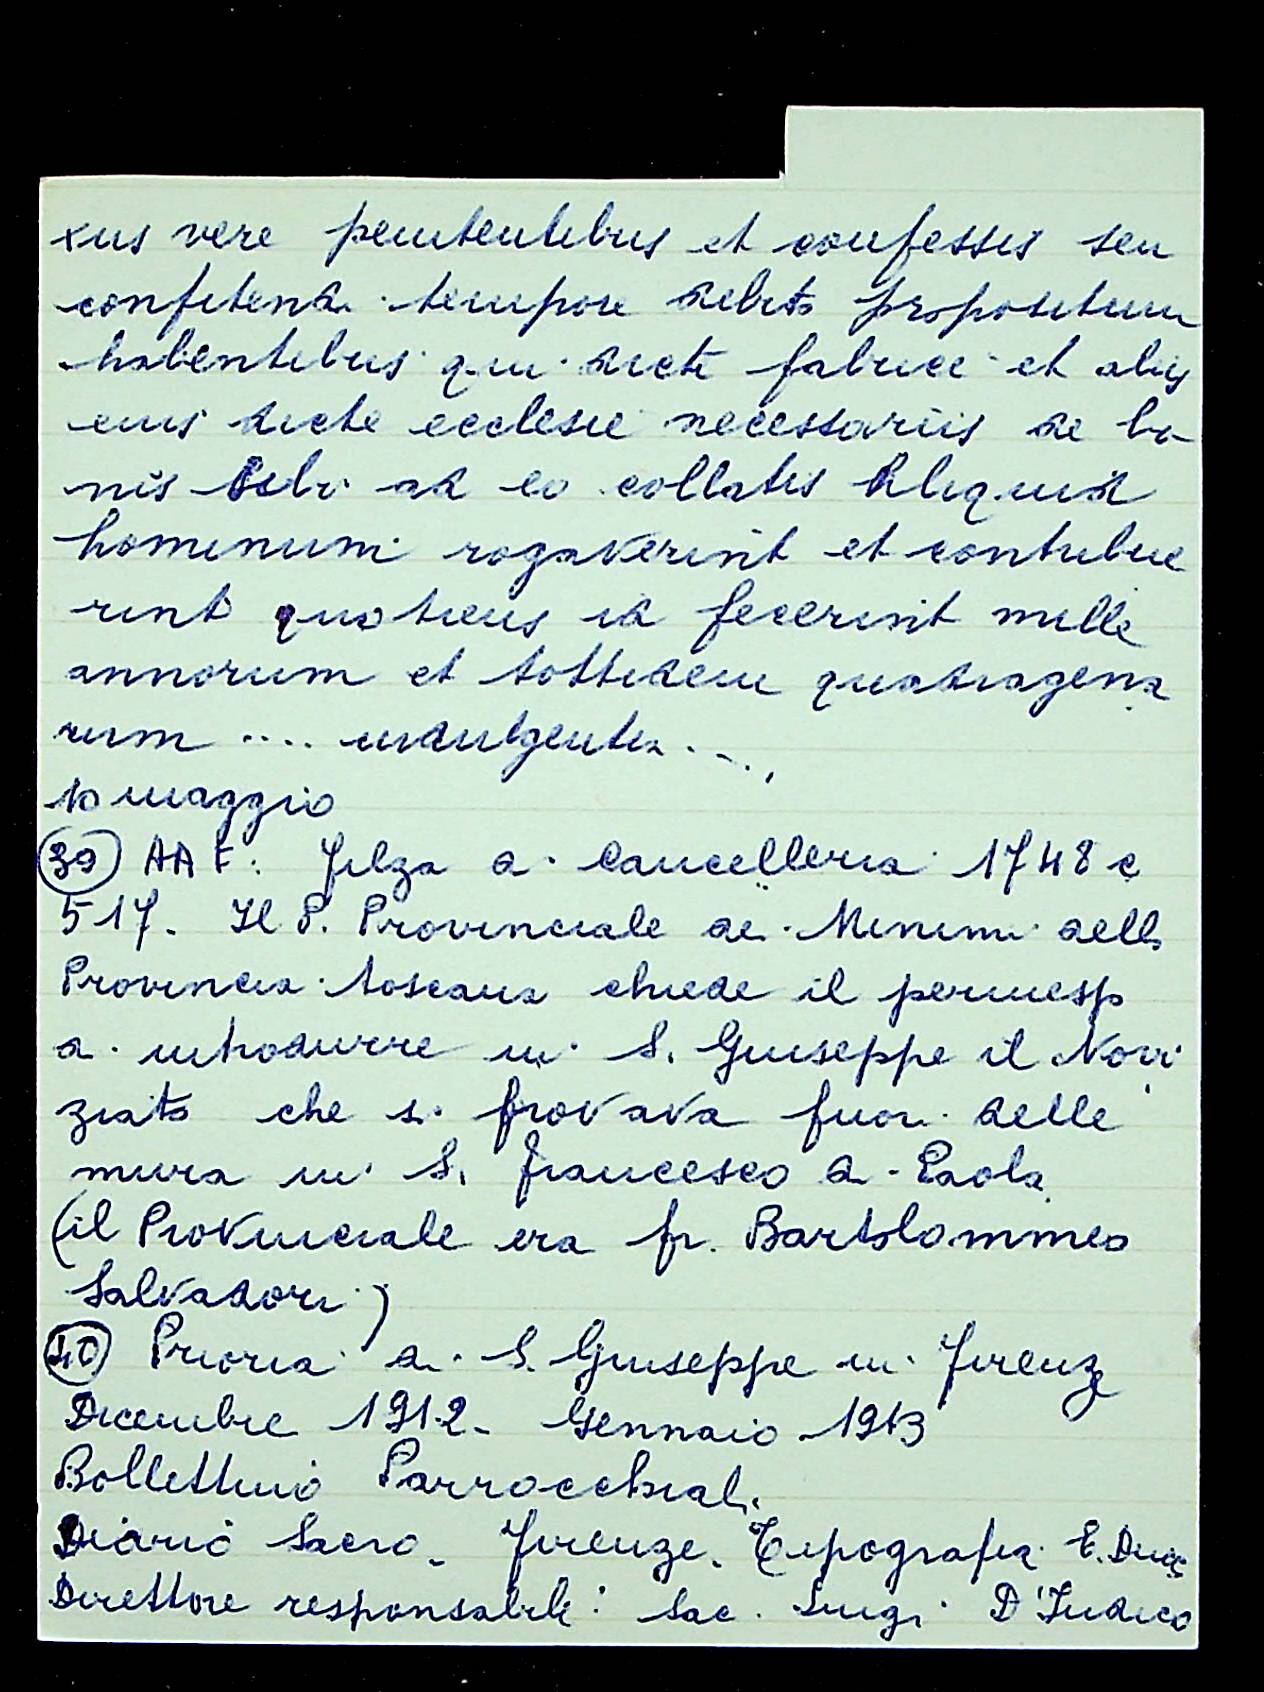 xus vere penitentibus et confessis seu
confitendi tempore debito propositum
habentibus qui dicte fabrice et aliis
eius dicte ecclesie necessariis de bo-
nis sibi ad eo collatis aliquid
hominum rogaverint et contribue
rint quotiens id fecerint mille
annorum et tottidem quadragena
rum .... indulgentia....
10 maggio
(39) AAF: Filza di Cancelleria 1748 c
517. Il P. Provinciale dei Minimi della
Provincia toscana chiede il permesso
di introdurre in S. Giuseppe il Novi
ziato che si trovava fuori delle
mura in S. Francesco di Paola
(il Provinciale era fr. Bartolommeo
Salvadori)
(40) Prioria di S. Giuseppe in Firenze
Dicembre 1912 - Gennaio 1913
Bollettino Parrocchiale
Diario Sacro - Firenze. Tipografia E. Ducci
Direttore responsabile: Sac. Luigi D'Indico